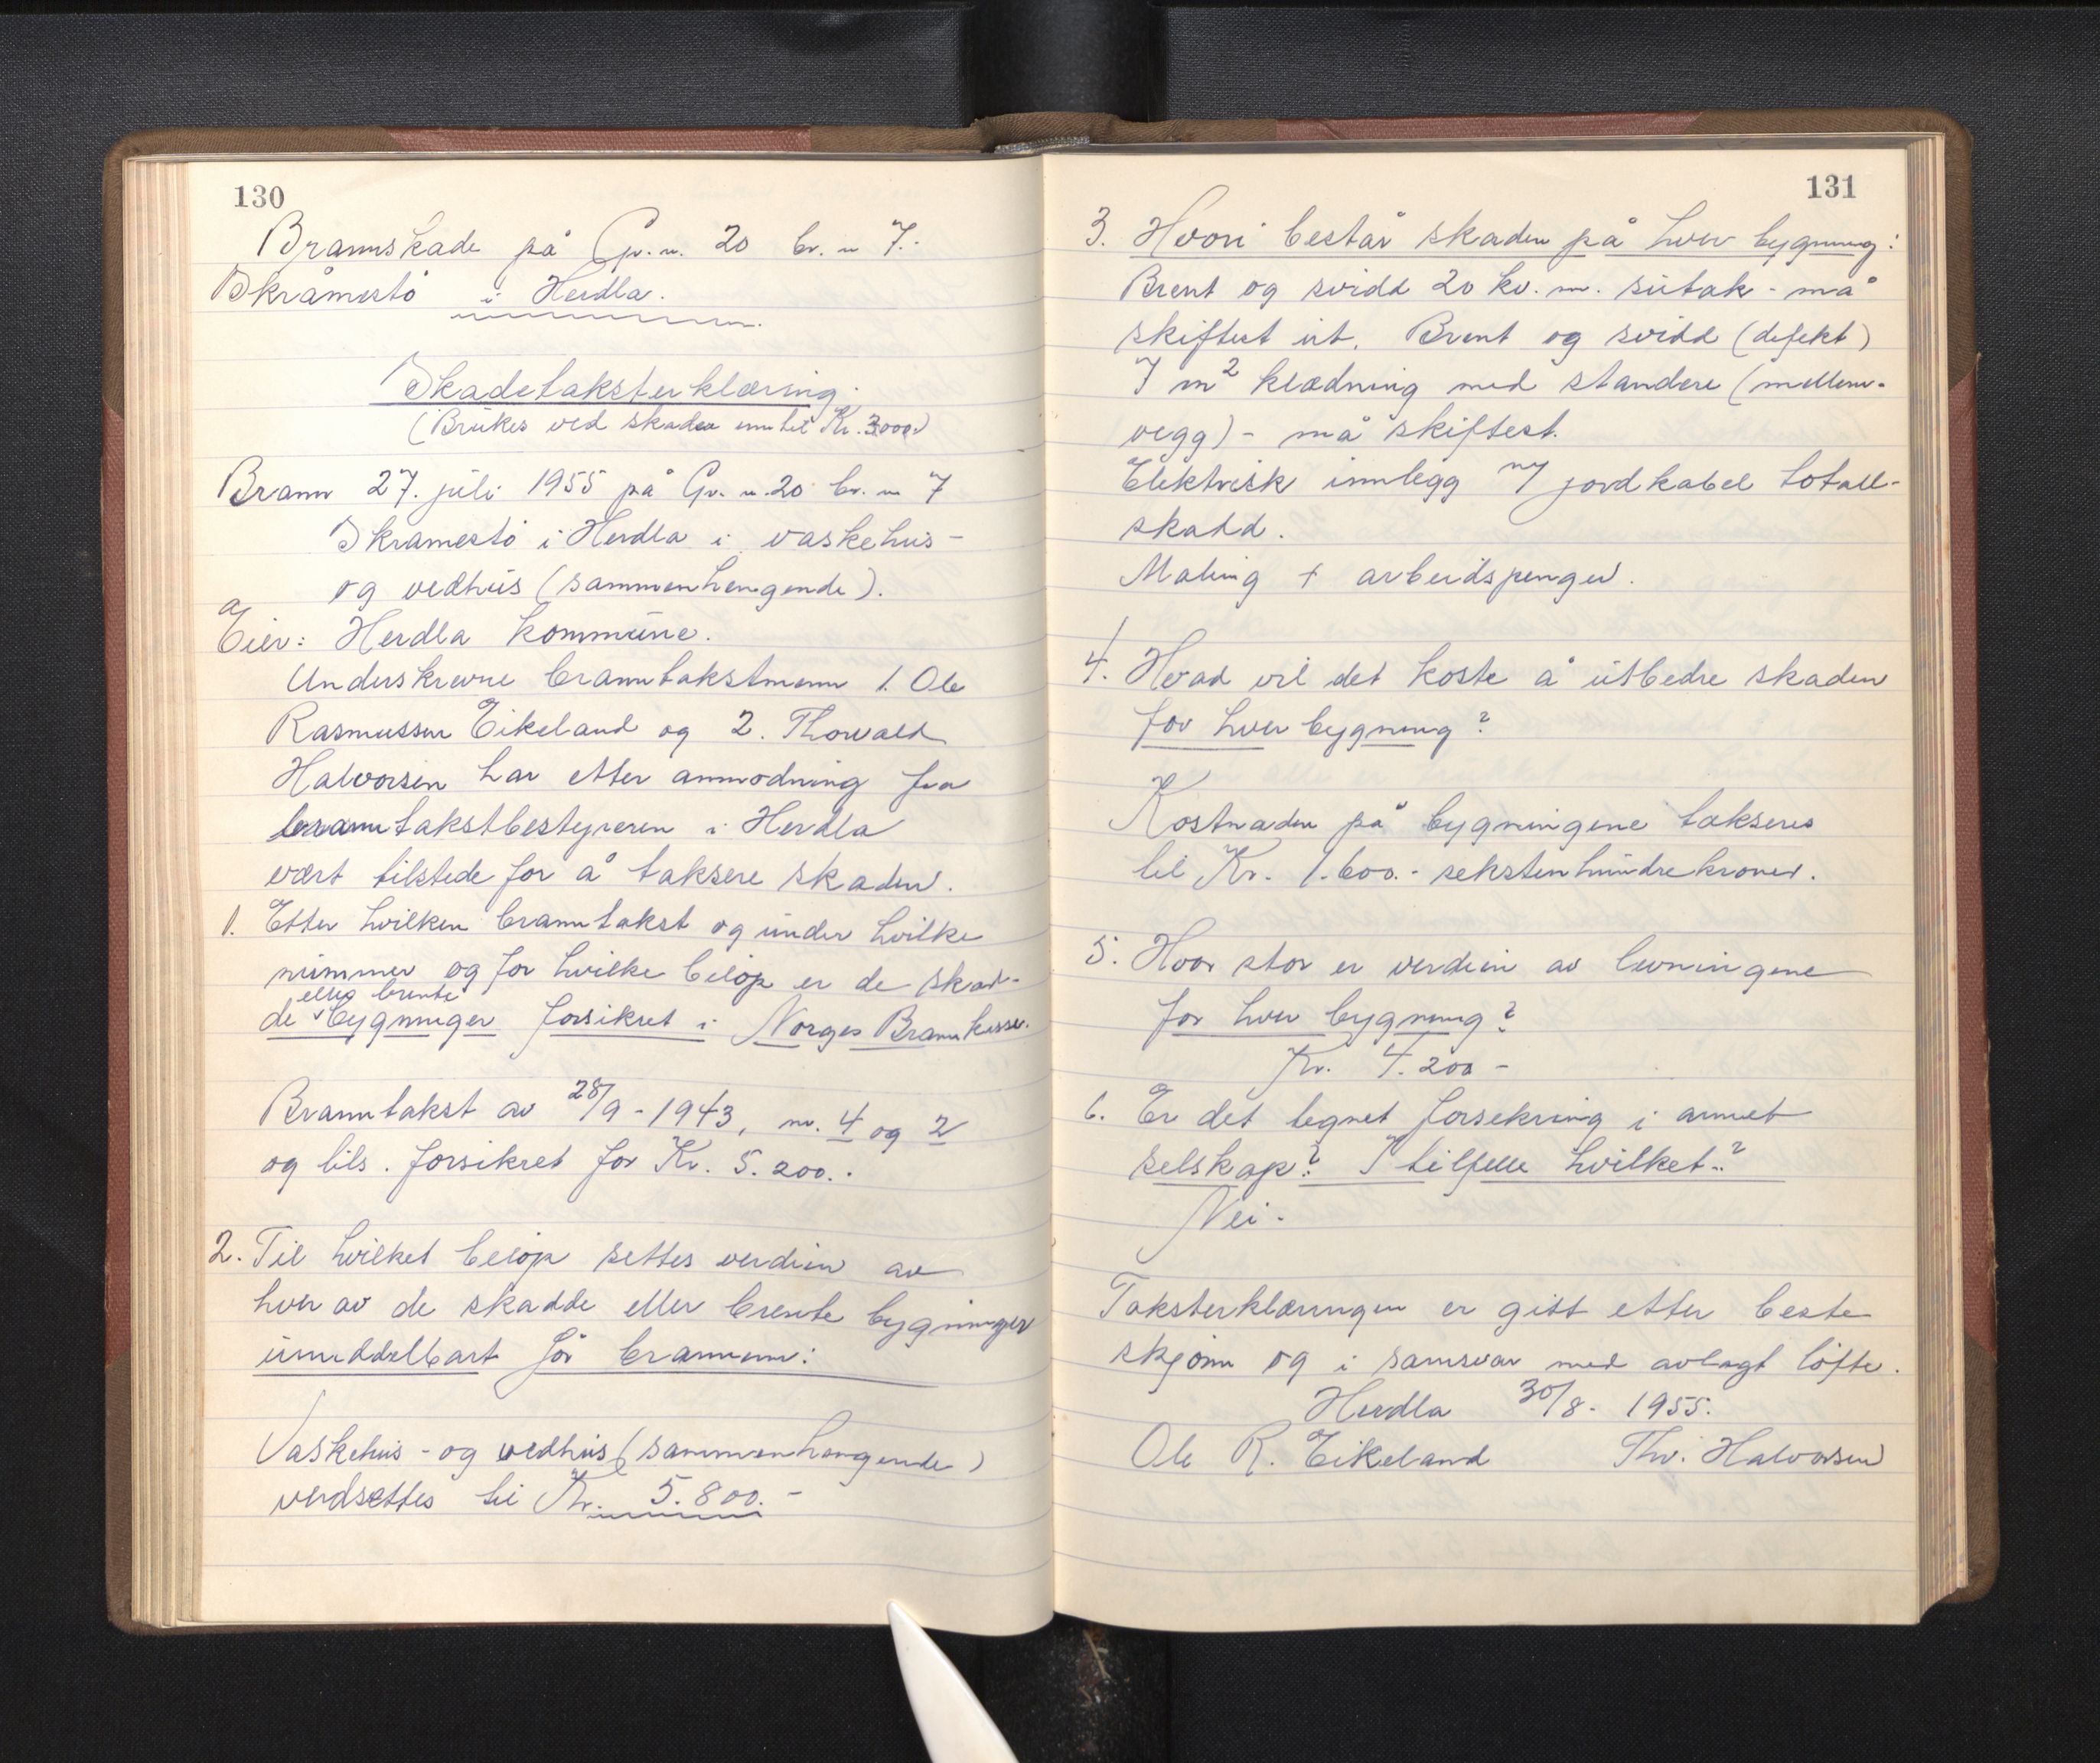 130
Brannskade på Gr.n. 20 br. n 7.
Skråmestö i Herdla.
Skadetaksterklæring.
(Brukes ved skader inntil Kr. 3000.)
Brann 27. juli 1955 på Gr. n. 20 br. n 7
Skråmestö i Herdla i vaskehus-
og vedhus (sammenhengende).
Eier: Herdla kommune.
Underskrevne branntakstmenn 1. Ole
Rasmussen Eikeland og 2. Thorvald
Halvorsen har etter anmodning fra
branntakstbestyreren i Herdla
vært tilstede for å taksere skaden.
1. Etter hvilken branntakst og under hvilke
nummer og for hvilke belöp er de skad-
eller brente
de bygninger forsikret i Norges Brannkasse.
Branntakst av 28/9-1943, nr. 4 og 2
og tils. forsikret for Kr. 5.200.-
2. Til hvilket belöp settes verdien av
hver av de skadde eller brente bygninger
umiddelbart för brannen:
Vaskehus- og vedhus (sammenhengende)
verdsettes til Kr. 5.800.-
131
3. Hvori består skaden på hver bygning:
Brent og svidd 20 kv. m. sutak - må
skiftest ut. Brent og svidd (defekt)
7 m² klædning med standere (mellom-
vegg) - må skiftest.
Elektrisk innlegg ny jordkabel totall-
skadd.
Maling + arbeidspenger.
4. Hvad vil det koste å utbedre skaden
for hver bygning?
Kostnaden på bygningene takseres
til Kr. 1.600.- sekstenhundrekroner.
5. Hvor stor er verdien av levningene
for hver bygning?
Kr. 4.200 -
6. Er det tegnet forsekring i annet
selskap? I tilfelle hvilket?
Nei.
Taksterklæringen er gitt etter beste
skjönn og i samsvar med avlagt löfte.
Herdla 30/8. 1955.
Ole R. Eikeland Thv. Halvorsen